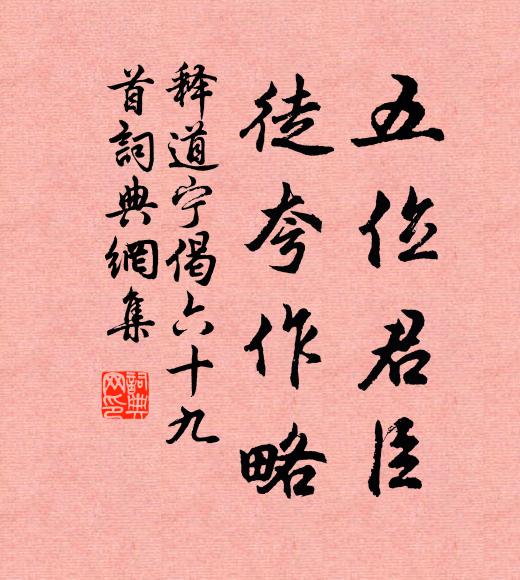 五位君臣
徒夸作略
释道宁偈六十九
首詞典網集
詞典
网印